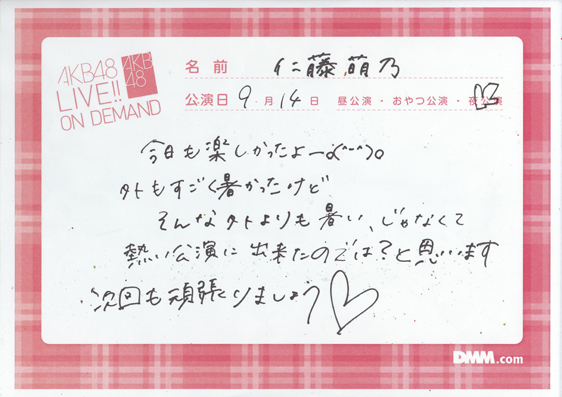 AKB48
LIVE!!
ON DEMAND
AKB
48
名前 仁藤萌乃
公演日 9・月 14 日 昼公演・おやつ公演・夜公演
今日も楽しかったよーo(^-^)o
外もすごく暑かったけど
そんな外よりも暑い、じゃなくて
熱い公演に出来たのでは?と思います
次回も頑張りましょう♡
DMM.com